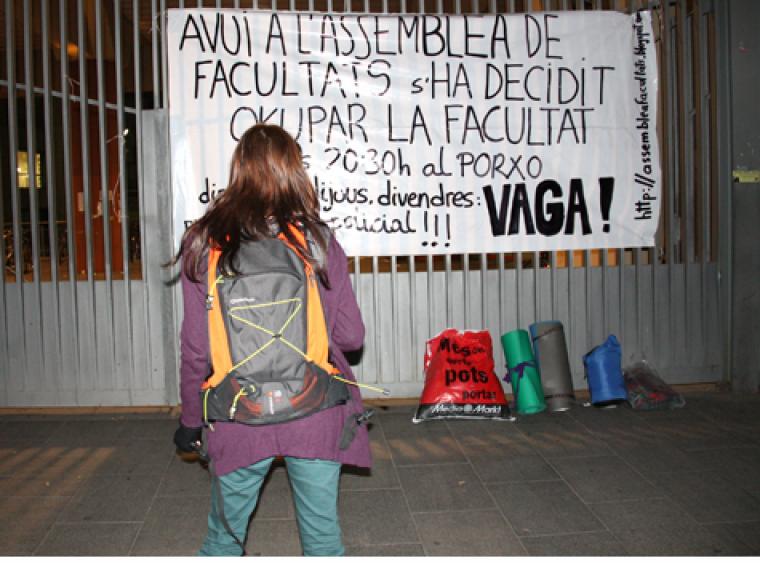 AVUI A L'ASSEMBLEA DE
FACULTATS s'HA DECIDIT
OKUPAR LA FACULTAT
20:30h al PORXO
dijous, divendres:
VAGA!
policial!!!
http://assembleafacultats.blogspot.com
Més
pots
portar
Media Markt